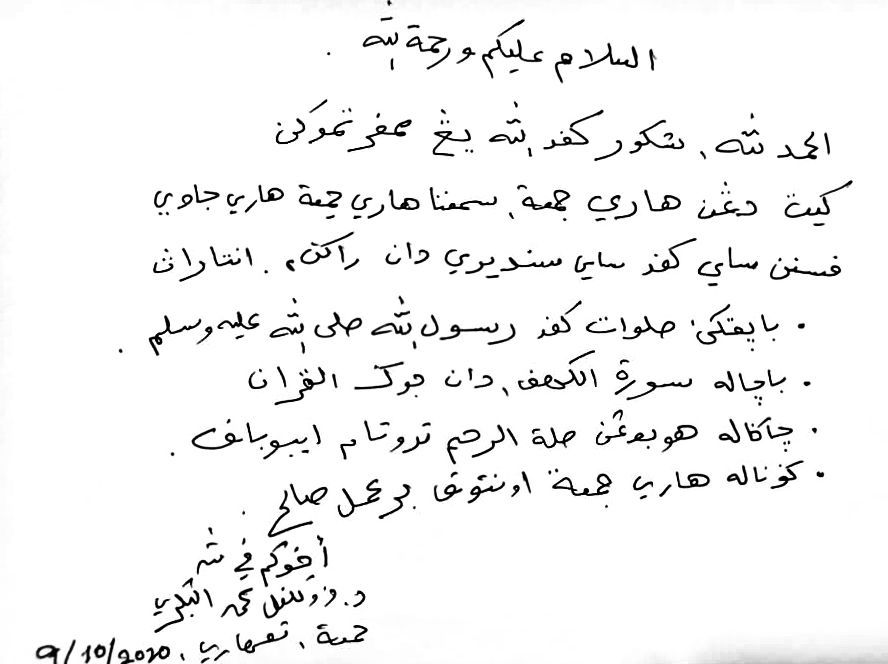 السلام عليكم ورحمة الله .
الحمد لله، شكور كفد الله يڠ ممفرتموكن
كيت دڠن هاري جمعة، سمفنا هاري جمعة هاري جاوي
فسنن ساي كفد ساي سنديري دان راكن٢. انتاراڽ
• باڽقكن صلوات كفد رسول الله صلى الله عليه وسلم .
• باچاله سورة الكهف، دان جوݢ القرءان
• جاݢاله هوبوڠن صلة الرحيم تروتام ايبوباف .
• ݢوناله هاري جمعة اونتوق برعمل صالح .
أخوكم في الله
د. ذوالكفل محمد البكري
جمعة، تڠهاري، 9/10/2020